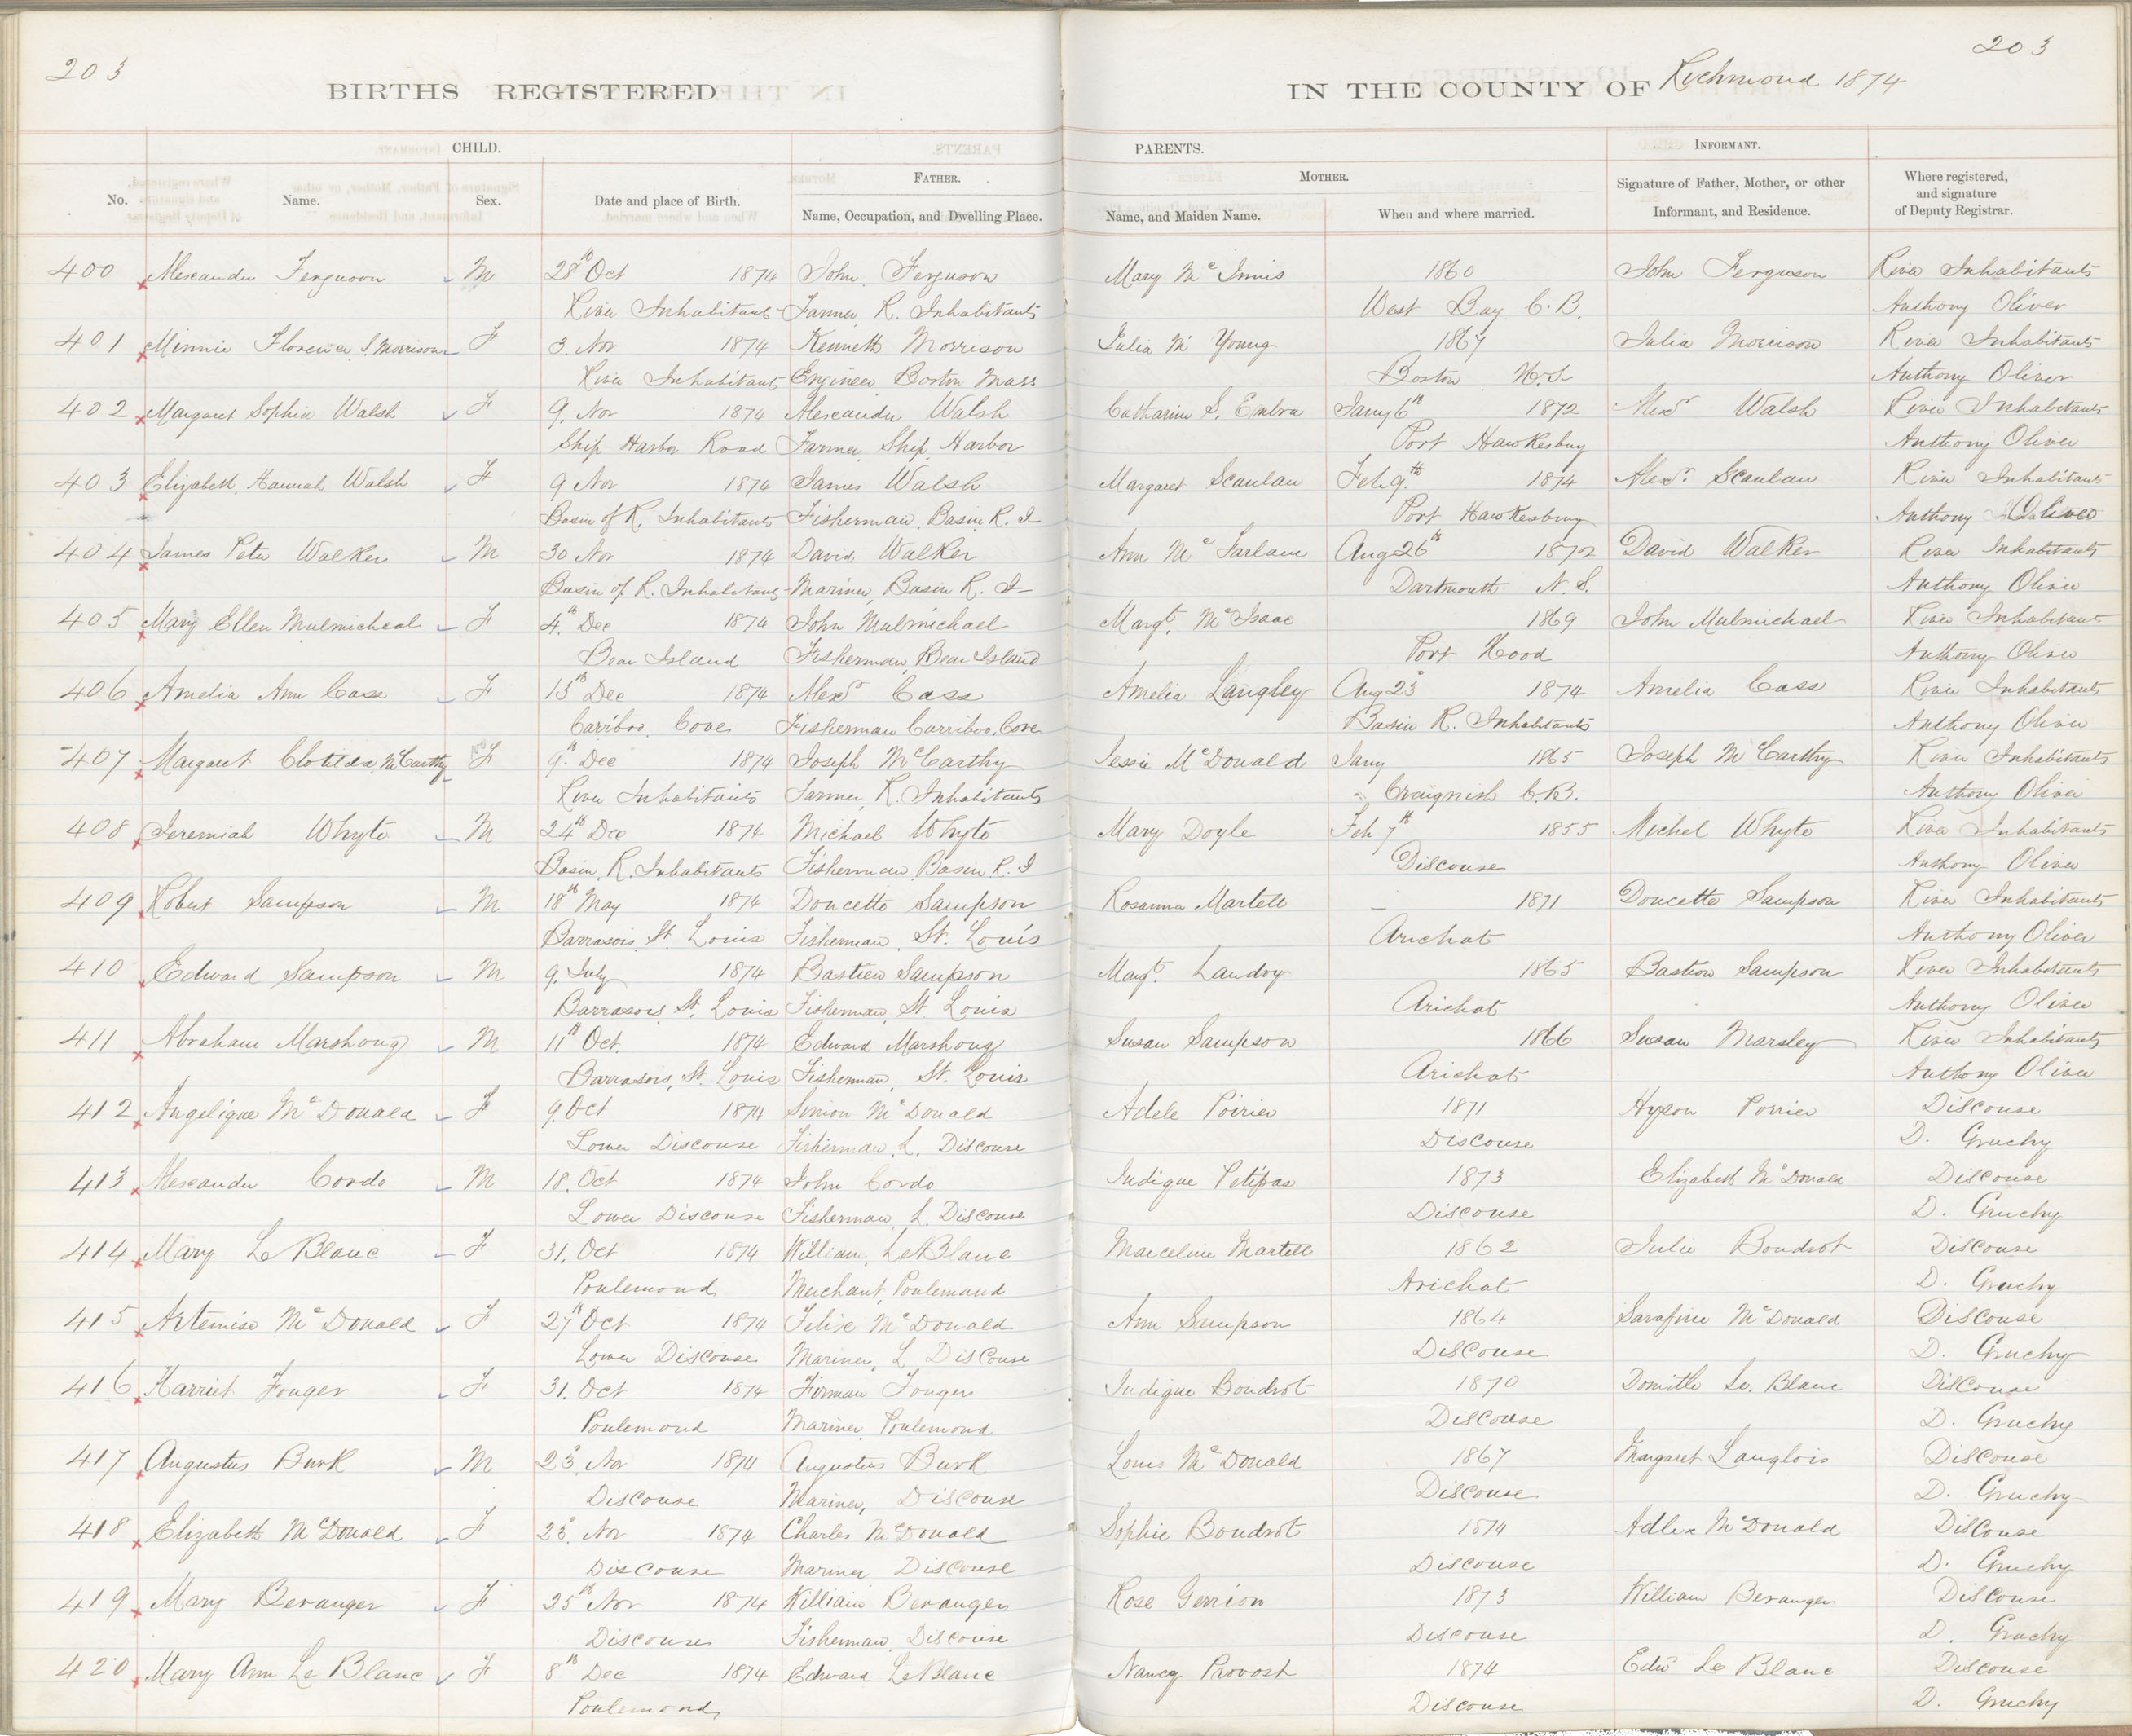 203
203
BIRTHS REGISTERED
IN THE COUNTY OF Richmond 1874
CHILD.
PARENTS.
INFORMANT.
No.
Name.
Sex.
Date and place of Birth.
FATHER.
Name, Occupation, and Dwelling Place.
MOTHER.
Name, and Maiden Name.
When and where married.
Signature of Father, Mother, or other
Informant, and Residence.
Where registered,
and signature
of Deputy Registrar.
400 Alexander Ferguson M 28th Oct 1874 John Ferguson Mary Mc Innis 1860 John Ferguson River Inhabitants
River Inhabitants Farmer, R. Inhabitants West Bay C.B. Anthony Oliver
401 Minnie Florence J. Morrison F 3. Nov 1874 Kenneth Morrison Julia M Young 1867 Julia Morrison River Inhabitants
River Inhabitants Engineer Boston Mass Boston Anthony Oliver
402 Margaret Sophia Walsh F 9. Nov 1874 Alexander Walsh Catharine S. Embra Jany 6th 1872 Alexr Walsh River Inhabitants
Ship Harbor Road Farmer, Ship Harbor Port Hawkesbury Anthony Oliver
403 Elizabeth Hannah Walsh F 9 Nov 1874 James Walsh Margaret Scanlan Feb 9.th 1874 Alexr. Scanlan River Inhabitants
Basin of R. Inhabitants Fisherman, Basin R. I Port Hawkesbury Anthony Oliver
404 James Peter Walker M 30 Nov 1874 David Walker Ann Mc Farlane Aug 26th 1872 David Walker River Inhabitants
Basin of R. Inhabitants Mariner, Basin R. I Dartmouth N.S. Anthony Oliver
405 Mary Ellen Mulmicheal F 4.th Dec 1874 John Mulmichael Margt. McIsaac 1869 John Mulmichael River Inhabitants
Bear Island Fisherman, Bear Island Port Hood Anthony Oliver
406 Amelia Ann Cass F 13th Dec 1874 Alexr Cass Amelia Langley Aug 23d 1874 Amelia Cass River Inhabitants
Carriboo Cove Fisherman Carriboo Cove Basin R. Inhabitants Anthony Oliver
407 Margaret Clotilda McCarthy F 9.th Dec 1874 Joseph McCarthy Jessie McDonald Jany 1865 Joseph McCarthy River Inhabitants
River Inhabitants Farmer, R. Inhabitants Craignish C.B. Anthony Oliver
408 Jeremiah Whyte M 24th Dec 1874 Michael Whyte Mary Doyle Feb 7th 1855 Michel Whyte River Inhabitants
Basin, R. Inhabitants Fisherman, Basin R. I Discouse Anthony Oliver
409 Robert Sampson M 18th May 1874 Doucette Sampson Rosanna Martell — 1871 Doucette Sampson River Inhabitants
Barrasois, St. Louis Fisherman, St. Louis Arichat Anthony Oliver
410 Edward Sampson M 9. July 1874 Bastien Sampson Margt. Landry 1865 Bastien Sampson River Inhabitants
Barrasois, St. Louis Fisherman, St. Louis Arichat Anthony Oliver
411 Abraham Marshong M 11th Oct. 1874 Edward Marshong Susan Sampson 1866 Susan Marsley River Inhabitants
Barrasois, St. Louis Fisherman, St. Louis Arichat Anthony Oliver
412 Angelique Mc Donald F 9. Oct 1874 Simion Mc Donald Adele Poirier 1871 Hyson Poirier Discouse
Lower Discouse Fisherman, L. Discouse Discouse D. Gruchy
413 Alexander Cordo M 18. Oct 1874 John Cordo Judique Petipas 1873 Elizabeth McDonald Discouse
Lower Discouse Fisherman, L. Discouse Discouse D. Gruchy
414 Mary Le Blanc F 31. Oct 1874 William LeBlanc Marceline Martell 1862 Julie Boudrot Discouse
Poulemond Merchant, Poulemond Arichat D. Gruchy
415 Artemise McDonald F 27th Oct 1874 Felixe McDonald Ann Sampson 1864 Sarafine McDonald Discouse
Lower Discouse Mariner, L. Discouse Discouse D. Gruchy
416 Harriet Fouger F 31. Oct 1874 Firman Fouger Judique Boudrot 1870 Domitle Le. Blanc Discouse
Poulemond Mariner, Poulemond Discouse D. Gruchy
417 Augustus Burk M 23d. Nov 1874 Augustus Burk Louis McDonald 1867 Margaret Langlois Discouse
Discouse Mariner, Discouse Discouse D. Gruchy
418 Elizabeth McDonald F 23d. Nov 1874 Charles McDonald Sophie Boudrot 1874 McDonald Discouse
Discouse Mariner Discouse Discouse D. Gruchy
419 Mary Beranger F 25th Nov 1874 William Beranger Rose Gerrion 1873 William Beranger Discouse
Discouse Fisherman, Discouse Discouse D. Gruchy
420 Mary Ann Le Blanc F 8th Dec 1874 Edward LeBlanc Nancy Provost 1874 Edwd Le Blanc Discouse
Poulemond Discouse D. Gruchy